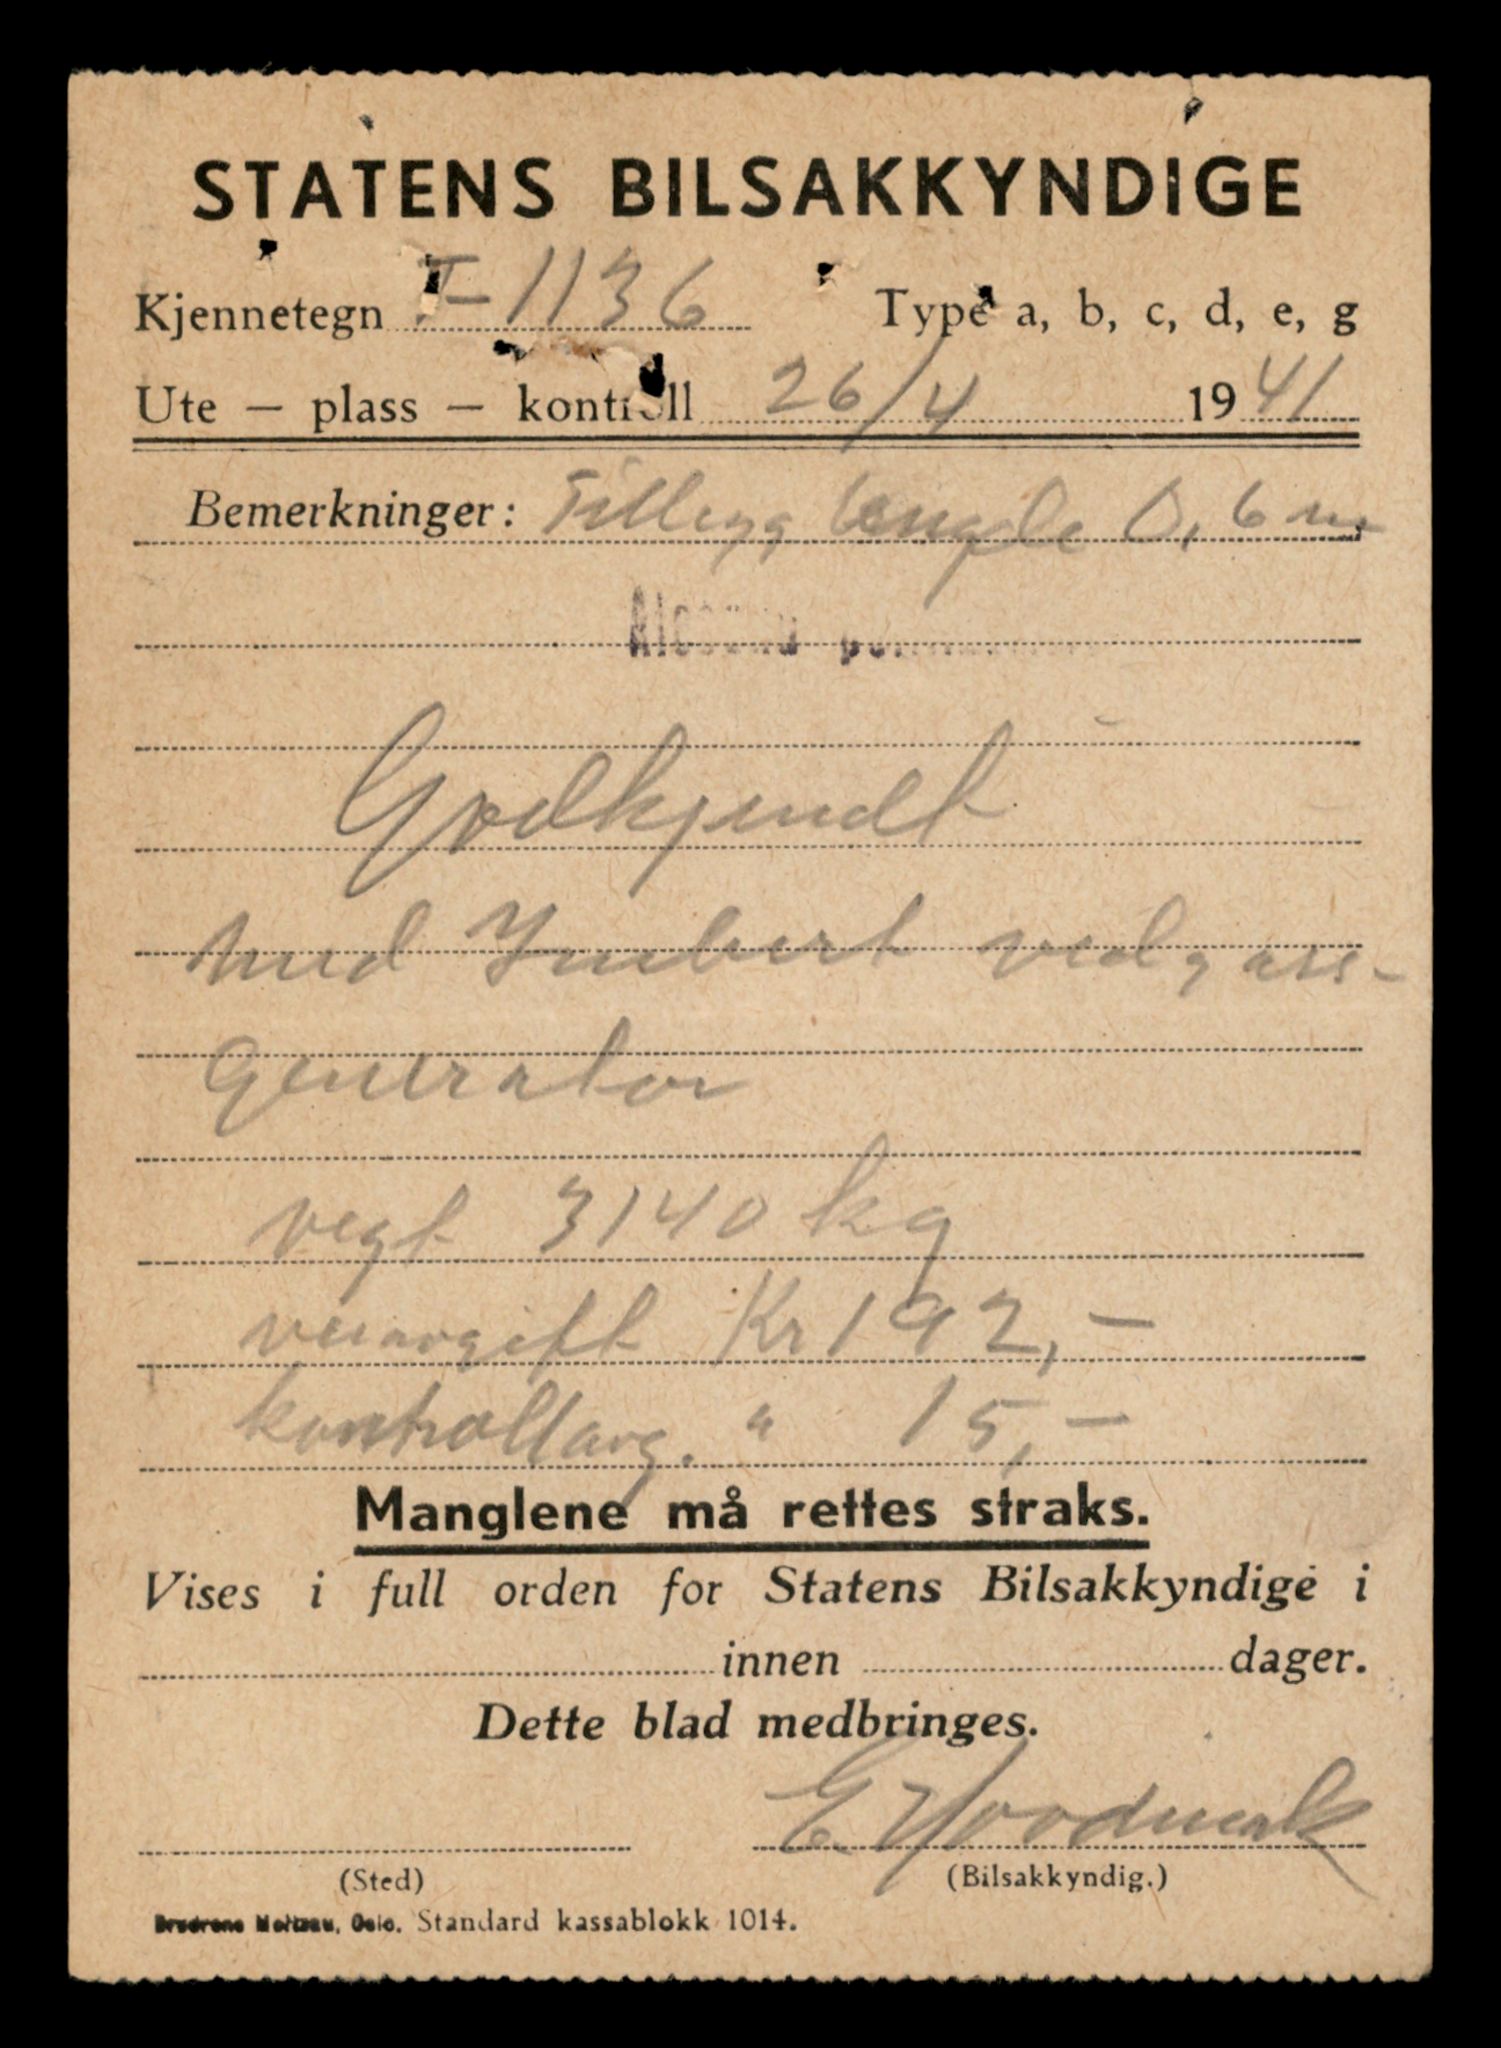 STATENS BILSAKKYNDIGE
Kjennetegn T-1136 Type a, b, c, d, e, g
Ute — plass — kontroll 26/4 1941
Bemerkninger: Tillegg lengde 0,6 m.
Godkjendt
med Imbert vedgass-
Generator
vegt 3140 kg
veiavgift Kr 192,-
kontrollavg. " 15,-
Manglene må rettes straks.
Vises i full orden for Statens Bilsakkyndige i
innen dager.
Dette blad medbringes.
E
(Sted) (Bilsakkyndig.)
Brødrene Moltzau, Oslo. Standard kassablokk 1014.